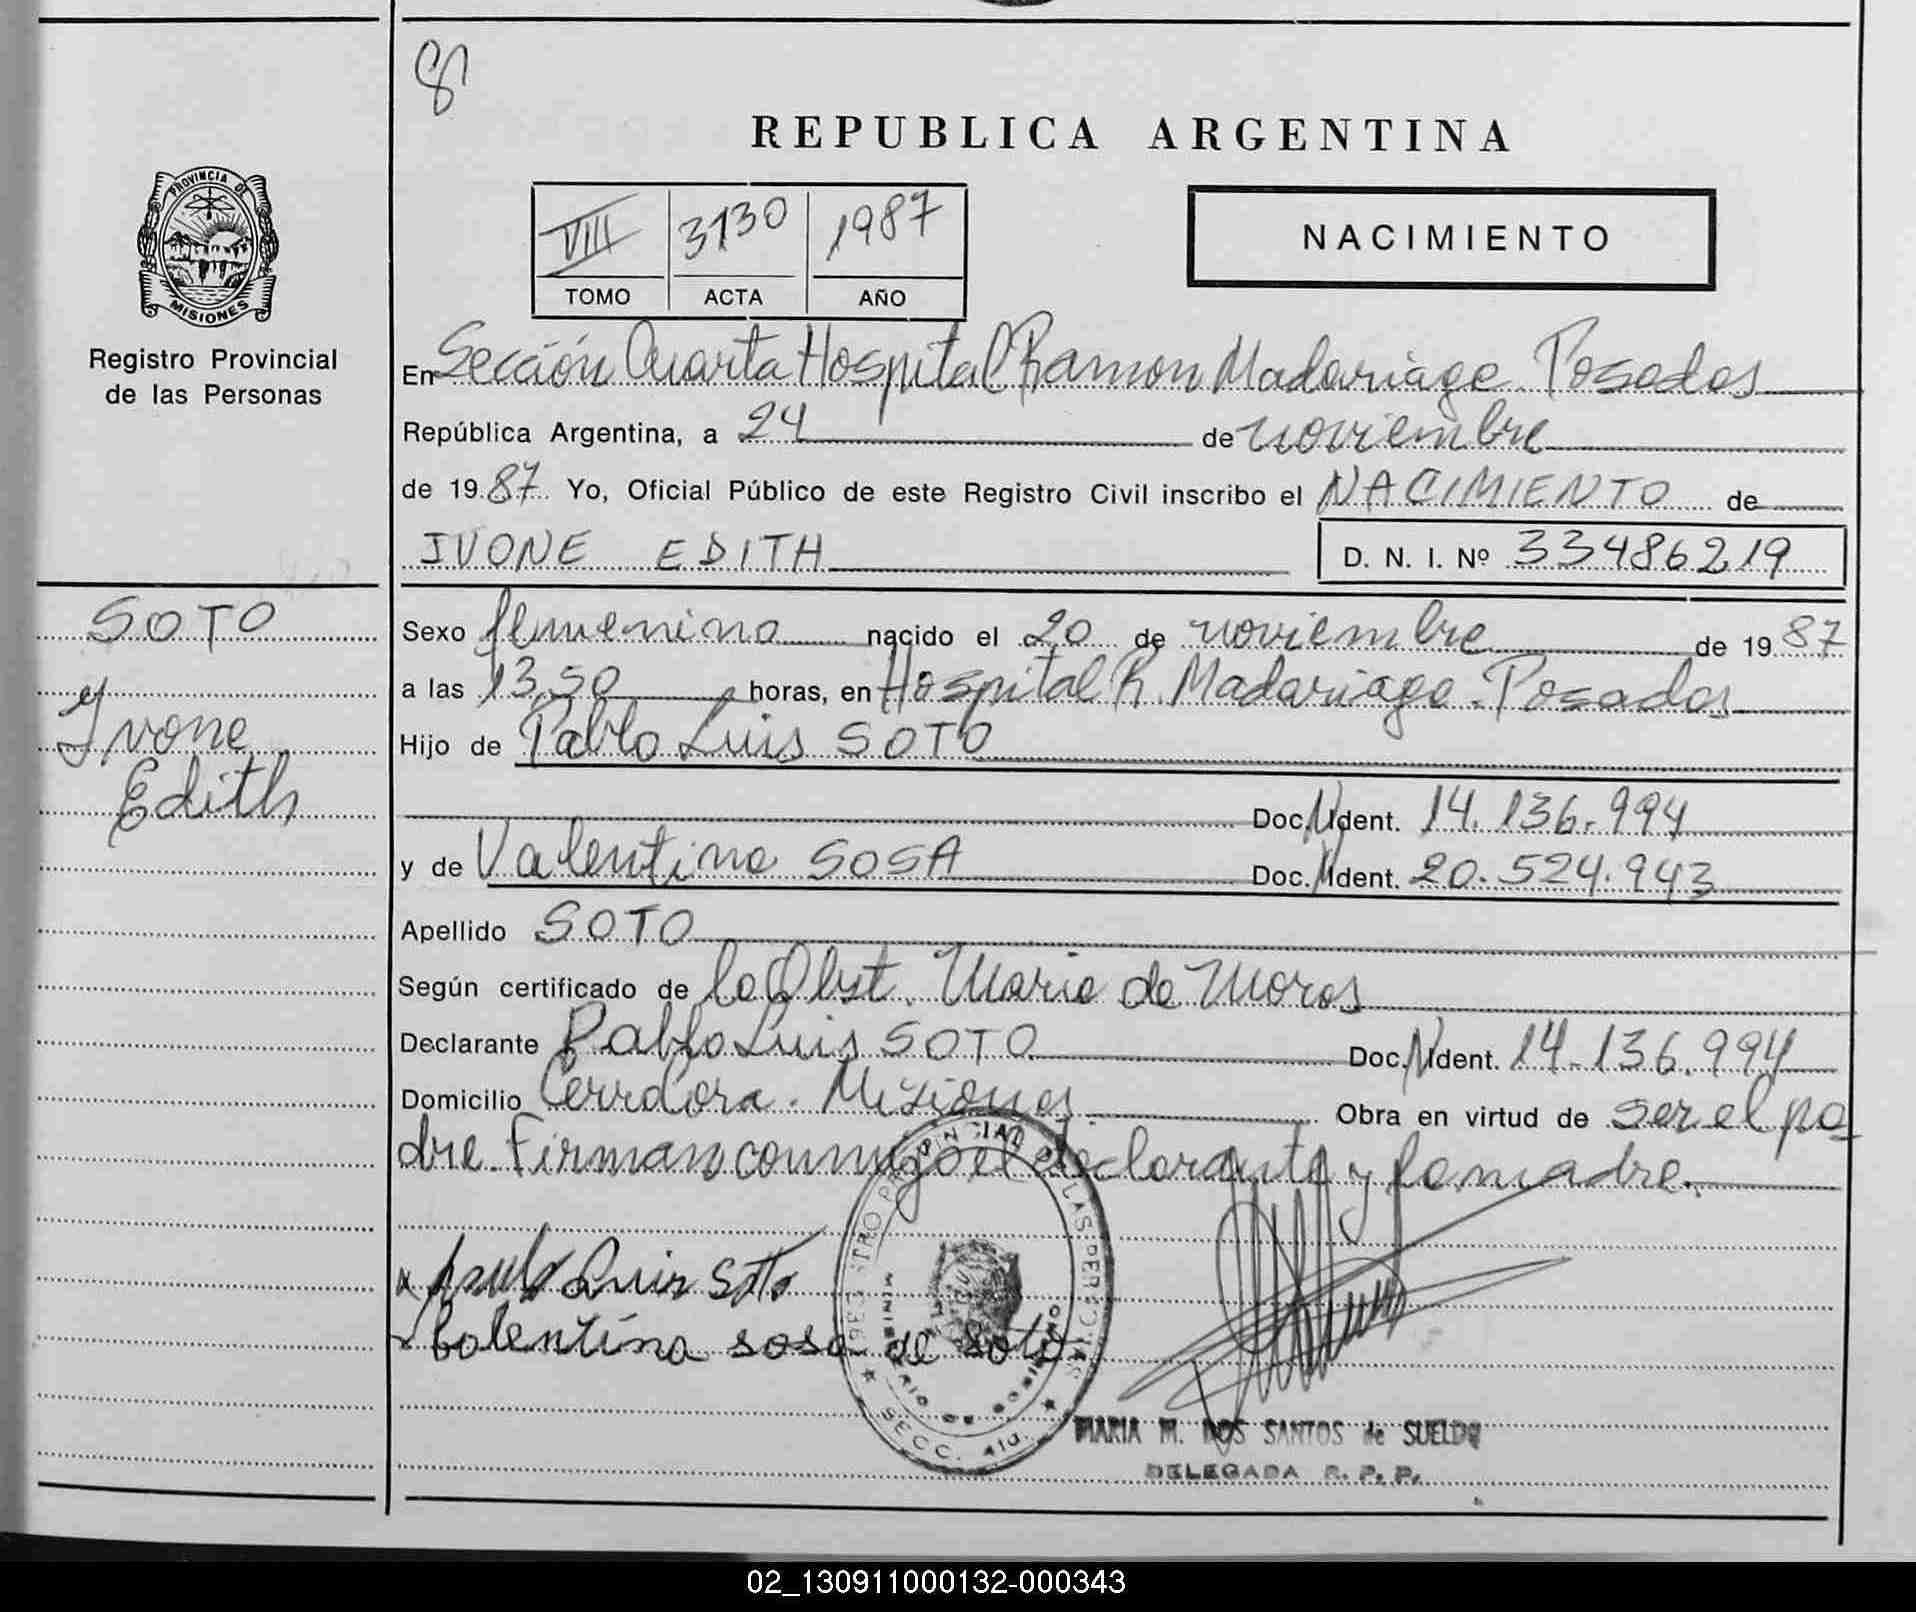 8
REPUBLICA ARGENTINA
PROVINCIA DE
MISIONES
Registro Provincial
de las Personas
VIII 3130 1987
TOMO ACTA AÑO
NACIMIENTO
En Sección Cuarta Hospital Ramon Madariaga. Posadas
República Argentina, a 24 de noviembre
de 1987 Yo, Oficial Público de este Registro Civil inscribo el NACIMIENTO de
IVONE EDITH
D. N. I. Nº 33486219
SOTO
Ivone
Edith
Sexo femenino nacido el 20 de noviembre de 1987
a las 13,50 horas, en Hospital R. Madariaga. Posadas
Hijo de Pablo Luis SOTO
Doc. N Ident. 14.136.994
y de Valentina SOSA Doc. N Ident. 20.524.943
Apellido SOTO
Según certificado de la Obst. Maria de Moros
Declarante Pablo Luis SOTO Doc. N Ident. 14.136.994
Domicilio Cerro Cora. Misiones Obra en virtud de ser el pa
dre. Firman conmigo el declarante y la madre.
x Pablo Luis Soto
x balentina sosa de Soto
REGISTRO PROVINCIAL DE LAS PERSONAS
MINISTERIO DE GOBIERNO
SECC. 4ta.
MARIA M. DOS SANTOS de SUELDO
DELEGADA R. P. P.
02_130911000132-000343